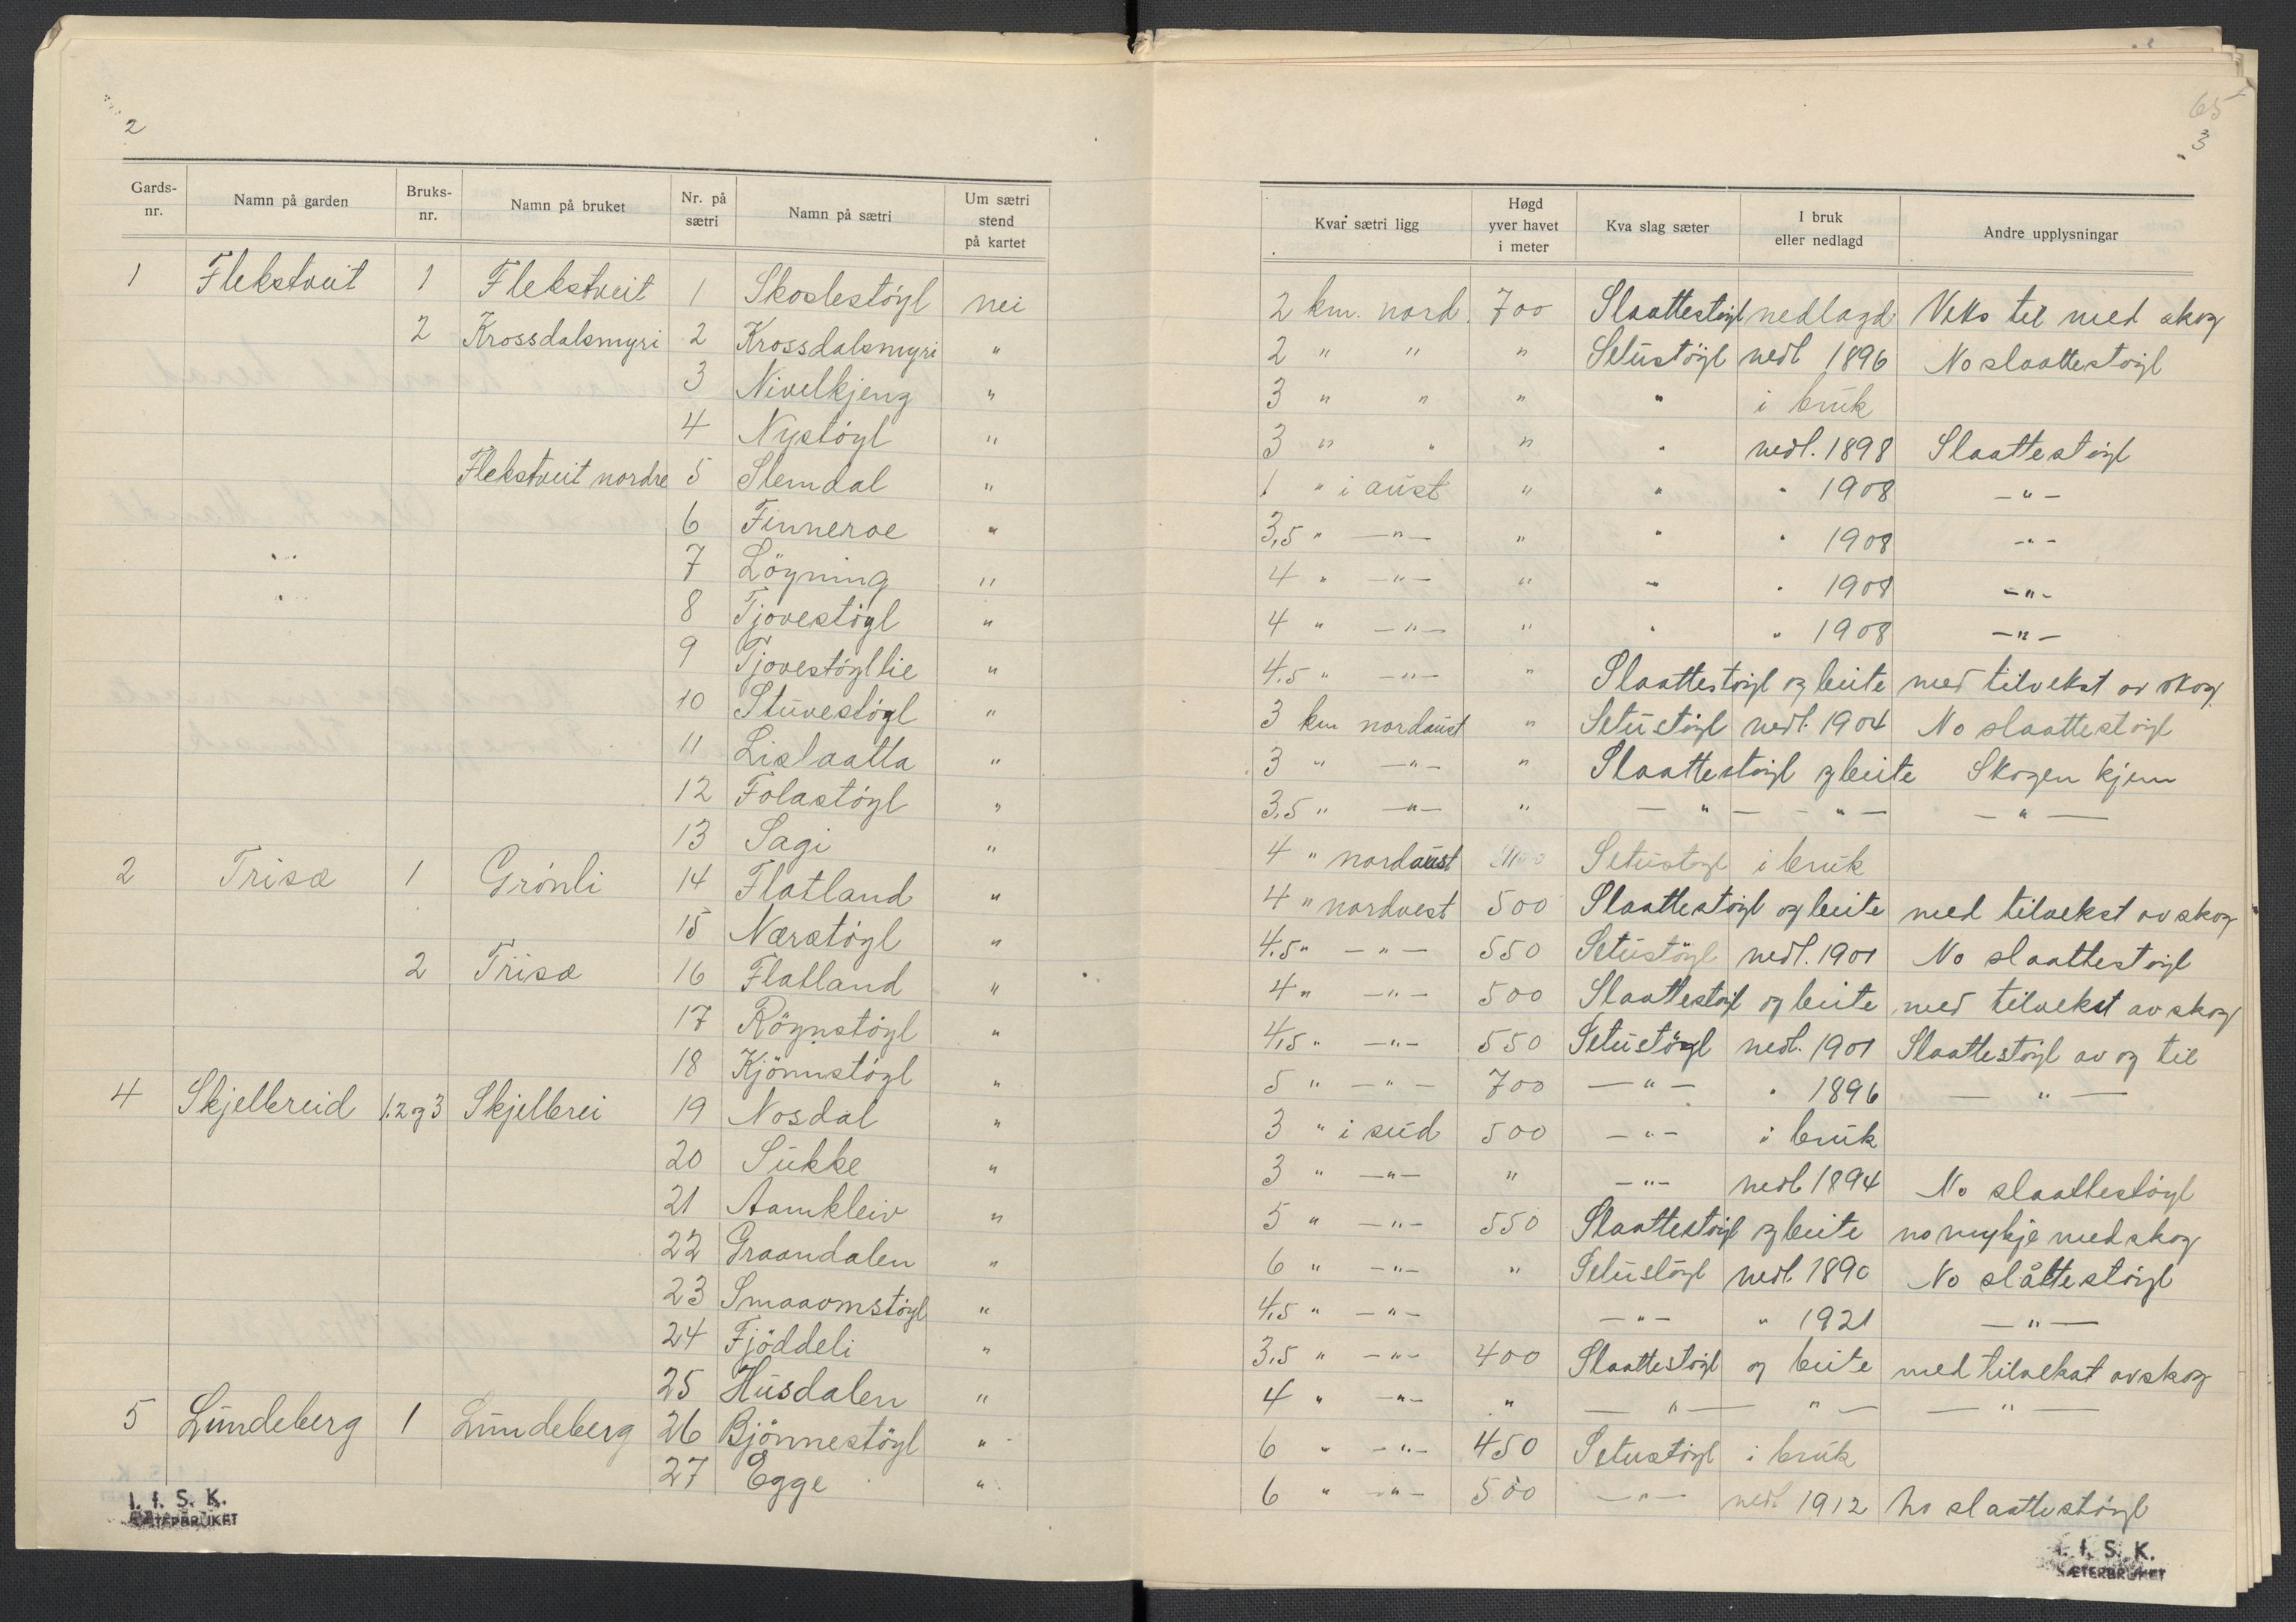 2
Gards-nr. Namn på garden Bruks-nr. Namn på bruket Nr. på sætri Namn på sætri Um sætri stend på kartet
1 Flekstveit 1 Flekstveit 1 Skoslestöyl nei
2 Krossdalsmyri 2 Krossdalsmyri "
3 Nivelkjeng "
4 Nystöyl "
Flekstveit nordre 5 Slemdal "
6 Finneroe "
7 Löyning "
8 Tjovestöyl "
9 Tjovestöyllie "
10 Stuvestöyl "
11 Lislaatta "
12 Folastöyl "
13 Sagi "
2 Trisæ 1 Grönli 14 Flatland "
15 Nærstöyl "
2 Trisæ 16 Flatland "
17 Röynstöyl "
18 Kjönnstöyl "
4 Skjelbreid 1.2 og 3 Skjelbrei 19 Nosdal "
20 Sukke "
21 Aamkleiv "
22 Graandalen "
23 Smaaomstöyl "
24 Fjöddeli "
25 Husdalen "
5 Lundeberg 1 Lundeberg 26 Bjönnestöyl "
27 Egge "
I. f. S. K.
SÆTERBRUKET
65
3
Kvar sætri ligg Høgd yver havet i meter Kva slag sæter I bruk eller nedlagd Andre upplysningar
2 km. nord. 700 Slaattestöyl nedlagd Veks til med skog
2 " " " Setustöyl nedl 1896 No slaattestöyl
3 " " " " i bruk
3 " " " " nedl. 1898 Slaattestöyl
1 " i aust " " " 1908 — " —
3,5 " — " — " " " 1908 — " —
4 " — " — " " " 1908 — " —
4 " — " — " " " 1908 — " —
4.5 " — " — " Slaattestöyl og beite med tilvekst av skog
3 km nordaust " Setustöyl nedl. 1904 No slaattestöyl
3 " — " — " Slaattestöyl og beite Skogen kjem
3,5 " — " — " — " — — " — — " —
4 " nordaust Setustöyl i bruk
4 " nordvest 500 Slaattestöyl og beite med tilvekst av skog
4.5 " — " — 550 Setustöyl nedl. 1901 No slaattestöyl
4 " — " — 500 Slaattestöyl og beite med tilvekst av skog
4,5 " — " — 550 Setustöyl nedl. 1901 Slaattestöyl av og til
5 " — " — 700 — " — " 1896 — " —
3 " i sud 500 — " — i bruk
3 " — " — " — " — nedl 1894 No slaattestöyl
5 " — " — 550 Slaattestöyl og beite no mykje med skog
6 " — " — " Setustöyl nedl. 1890 No slåttestöyl
4,5 " — " — — " — " 1921 — " —
3,5 " — " — 400 Slaattestöyl og beite med tilvekst av skog
4 " — " — " — " — " — — " —
6 " — " — 450 Setustöyl i bruk
6 " — " — 500 — " — nedl 1912 No slaattestöyl
I. f. S. K.
SÆTERBRUKET